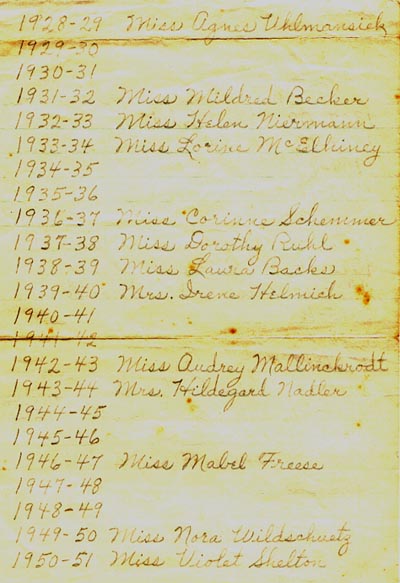 1928-29 Miss Agnes Uhlmansiek
1929-30
1930-31
1931-32 Miss Mildred Becker
1932-33 Miss Helen Niermann
1933-34 Miss Lorine McElhiney
1934-35
1935-36
1936-37 Miss Corinne Schemmer
1937-38 Miss Dorothy Ruhl
1938-39 Miss Laura Backs
1939-40 Mrs. Irene Helmich
1940-41
1941-42
1942-43 Miss Audrey Mallinckrodt
1943-44 Mrs. Hildegard Nadler
1944-45
1945-46
1946-47 Miss Mabel Freese
1947-48
1948-49
1949-50 Miss Nora Wildschuetz
1950-51 Miss Violet Shelton